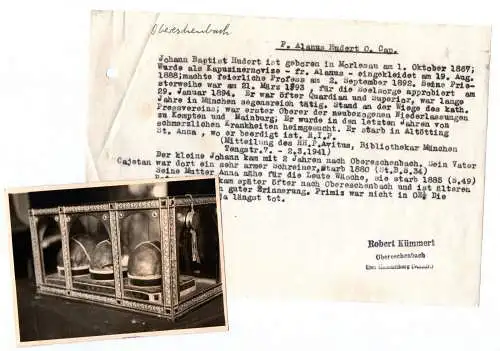 Obereschenbach
P. Alanus Hudert O. Cap.
Johann Baptist Hudert ist geboren in Morlesau am 1. Oktober 1867;
Wurde als Kapuzinernovize - fr. Alanus - eingekleidet am 19. Aug.
1888; machte feierliche Profess am 2. September 1892. Seine Prie-
sterweihe war am 21. März 1893 , für die Seelsorge approbiert am
29. Januar 1894. Er war öfter Quardian und Superior, war lange
Jahre in München segensreich tätig. Stand an der Wiege des kath.
Pressvereins; war erster Oberer der neubezogenen Niederlassungen
zu Kempten und Mainburg; Er wurde in den letzten Jahren von
schmerzlichen Krankheiten heimgesucht. Er starb in Altötting
St. Anna , wo er beerdigt ist. R.I.P.
(Mitteilung des HH.P.Avitus, Bibliothekar München
Tengstr.7. - 2.3.1941)
Der kleine Johann kam mit 2 Jahren nach Obereschenbach. Sein Vater
Cajetan war dort ein sehr armer Schreiner, starb 1880 (St.B.S.34)
Seine Mutter Anna nähte für die Leute Wäsche, sie starb 1885 (S.49)
kam später öfter nach Obereschenbach und ist älteren
guter Erinnerung. Primiz war nicht in Die
ja längst tot.
Robert Kümmert
Obereschenbach